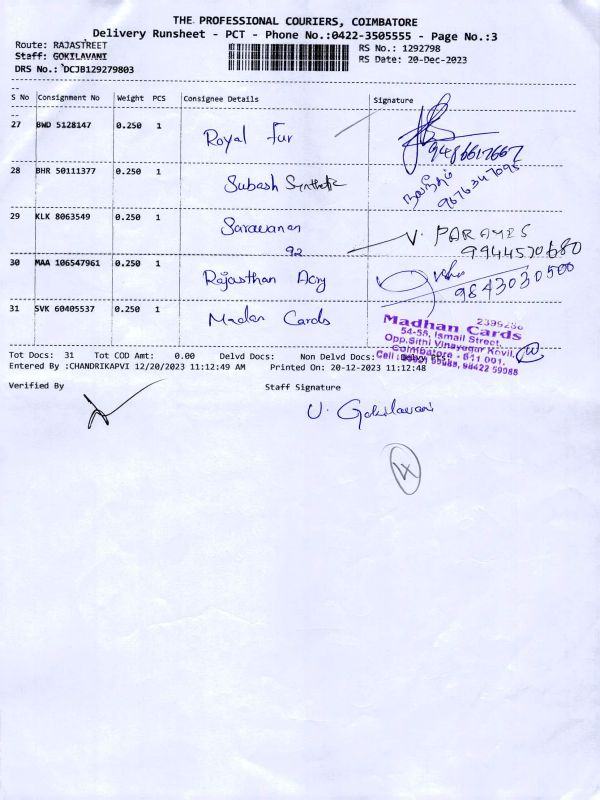 THE PROFESSIONAL COURIERS, COIMBATORE
Delivery Runsheet - PCT - Phone No.:0422-3505555 - Page No.:3
Route: RAJASTREET
RS No.: 1292798
Staff: GOKILAVANI
RS Date: 20-Dec-2023
DRS No.: DCJB129279803
S No Consignment No Weight PCS Consignee Details Signature
27 BWD 5128147 0.250 1 Royal Fur
9486617667
28 BHR 50111377 0.250 1 Subash Synthetic
9676347095
29 KLK 8063549 0.250 1 Saravanan V. PARAMES
92 9944570680
30 MAA 106547961 0.250 1 Rajasthan Acry
9843030500
31 SVK 60405537 0.250 1 Madan Cards
Madhan Cards
54-55, Ismail Street,
Opp.Sithi Vinayagar Kovil,
Coimbatore - 641 001.
Tot Docs: 31 Tot COD Amt: 0.00 Delvd Docs: Non Delvd Docs:
Entered By :CHANDRIKAPVI 12/20/2023 11:12:49 AM Printed On: 20-12-2023 11:12:48
Verified By Staff Signature
V. Gokilavani
4